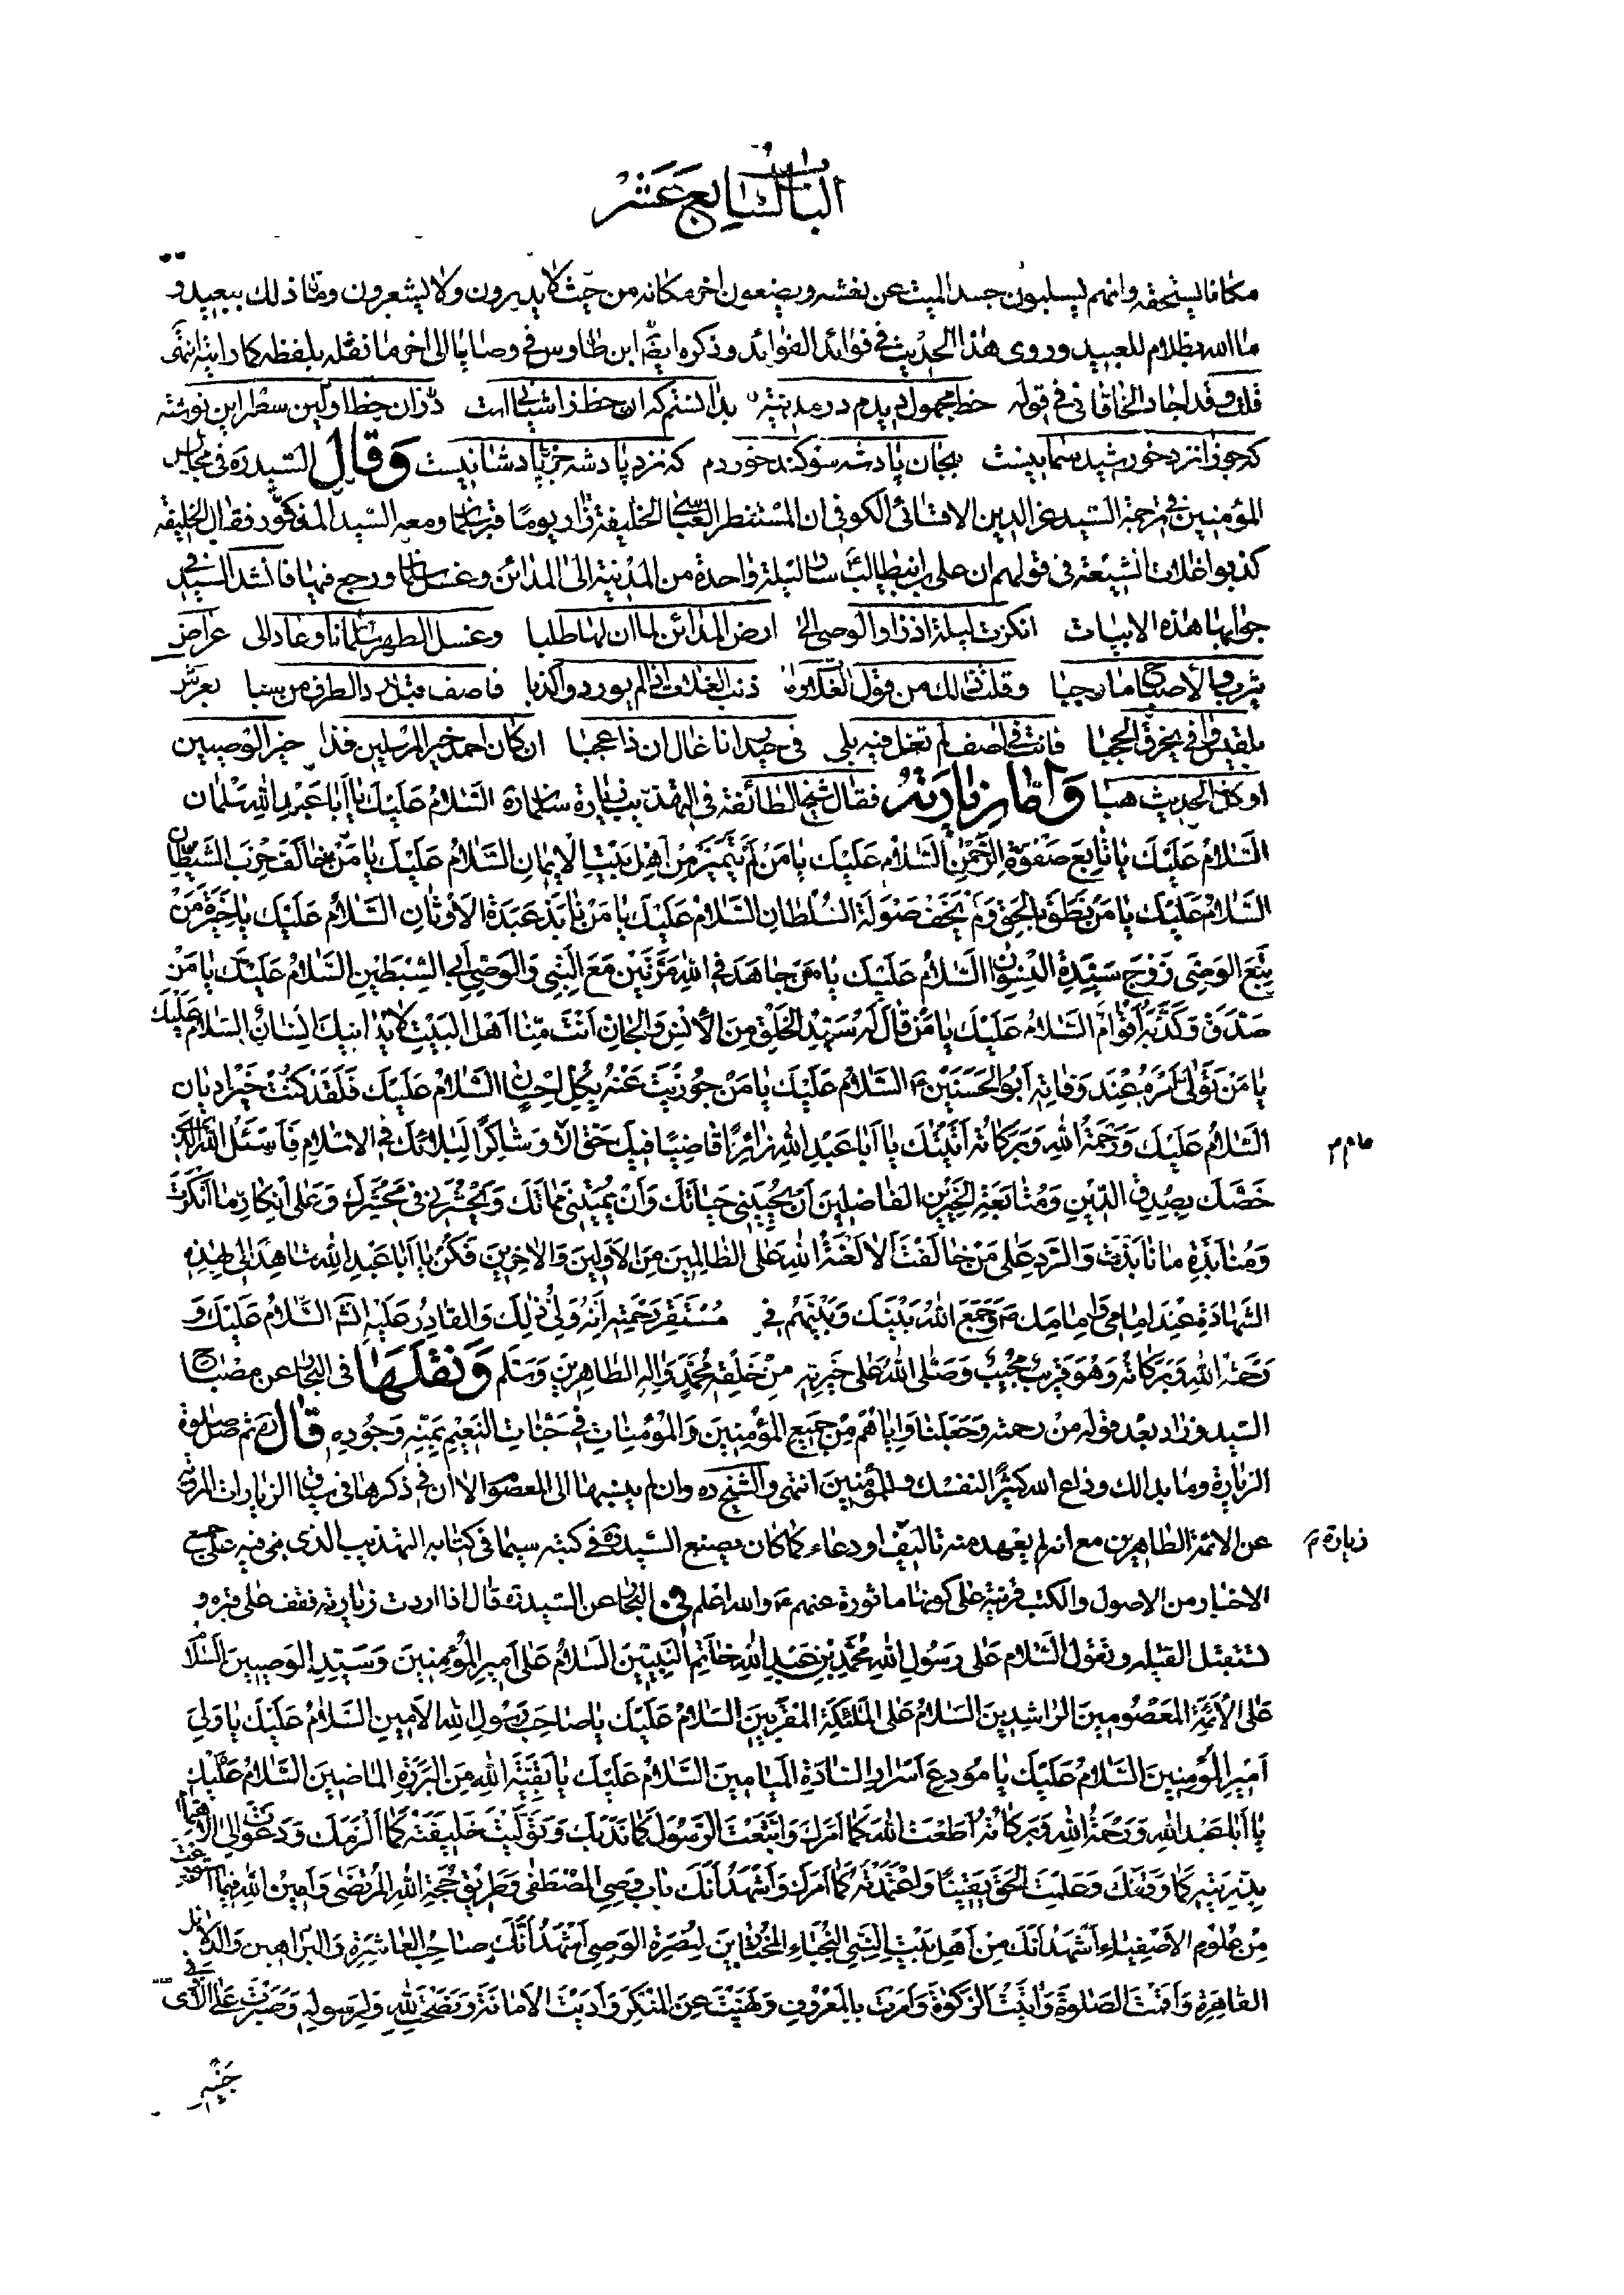 الباب السابع عشر
مكانا يستحقه وانهم ليسلبون جسد الميت عن نفسه ويضعون اخر مكانه من حيث لا يدرون ولا يشعرون وما ذلك ببعيد و
ما الله بظلام للعبيد وروى هذا الحديث في فوائد الفوائد وذكره ايضا ابن طاوس في وصاياه الى اخر ما نقله بلفظه كما رايته انتهى
قلت وقد اجاد الخاقاني في قوله خط مجهول ديدم در مدينه بدانستم كه ان خط ز اشنايى است در ان خط اولين سطر اين نوشته
كه جوزا نزد خورشيد سما نيست بجان پادشه سوكند خوردم كه نزد پادشه جز پادشا نيست وقال السيد ره في مجالس
المؤمنين في ترجمة السيد عز الدين الاقتاسى الكوفي ان المستنصر العباسي الخليفة زار يوما قبر سلمان ومعه السيد المذكور فقال الخليفة
كذبوا غلات الشيعة في قولهم ان علي بن ابيطالب سار ليلة واحدة من المدينة الى المدائن وغسل سلمان ورجع فيها فانشد السيد في
جوابها هذه الابيات انكرت ليلة اذ زار الوصي الى ارض المدائن لما ان لها طلبا وغسل الطهر سلمانا وعاد الى عراص
يثرب والاصباح ما وجبا وقلت ذلك من قول الغلاة وما ذنب الغلات اذا لم يوردوا كذبا فاصف قبل رد الطرف من سبا بعرش
بلقيس وافى يخرق الحجبا فانت في اصف لم تغل فيه بلى في حيدر انا غال ان ذا عجبا ان كان احمد خير المرسلين فذا خير الوصيين
او كل الحديث هبا واما زيارته فقال شيخ الطائفة في التهذيب زيارة سلمان ره السلام عليك يا ابا عبد الله سلمان
السلام عليك يا تابع صفوة الرحمن السلام عليك يا من لم يتميز من اهل بيت الايمان السلام عليك يا من خالف حزب الشيطان
السلام عليك يا من نطق بالحق ولم يخف صولة السلطان السلام عليك يا من نابذ عبدة الاوثان السلام عليك يا خير من
تبع الوصي زوج سيدة النسوان السلام عليك يا من جاهد في الله مرتين مع النبي والوصي ابي السبطين السلام عليك يا من
صدق وكذبه اقوام السلام عليك يا من قال له سيد الخلق من الانس والجان انت منا اهل البيت لا يدانيك انسان السلام عليك
يا من تولى امره عند وفاته ابو الحسنين السلام عليك يا من جوزيت عنه بكل احسان السلام عليك فلقد كنت خير اديان
السلام عليك ورحمة الله وبركاته اتيتك يا ابا عبد الله زائرا قاضيا فيك حق الا وشاكرا لبلائك في الاسلام فاسئل الله الذي
خصك بصدق الدين ومتابعة الخيرين الفاضلين ان يحييني حياتك وان يميتني مماتك ويحشرني في محشرك وعلى انكار ما انكرت
ومنابذة ما نابذت والرد على من خالفت الا لعنة الله على الظالمين من الاولين والاخرين فكن يا ابا عبد الله شاهدا لي بهذه
الشهادة عند امامي وامامك وجمع الله بينك وبينهم في مستقر رحمته انه ولي ذلك والقادر عليه انشم السلام عليك و
رحمة الله وبركاته وهو قريب مجيب وصلى الله على خيرته من خلقه محمد واله الطاهرين وسلم ونقلها في البحار عن مصباح
السيد وزاد بعد قوله من رحمته وجعلنا واياهم من جميع المؤمنين والمؤمنات في جنات النعيم بمنه وجوده قال ره ثم صل صلوة
الزيارة وما بدا لك وادع الله كثيرا لنفسك وللمؤمنين انتهى والشيخ ره وان لم ينسبها الى المعصوم الا ان في ذكرها في سياق الزيارات المروية
عن الائمة الطاهرين مع انه لم يعهد منه تاليف او دعاء كما كان يصنع السيد ره في كتبه سيما في كتابه التهذيب الذي بنى فيه على جمع
الاخبار من الاصول والكتب قرينة على كونها ماثورة عنهم والله اعلم في البحار عن السيد ره قال اذا اردت زيارته فقف على قبره و
تستقبل القبله وتقول السلام على رسول الله محمد بن عبد الله خاتم النبيين السلام على امير المؤمنين وسيد الوصيين السلام
على الائمة المعصومين الراشدين السلام على الملئكة المقربين السلام عليك يا صاحب رسول الله الامين السلام عليك يا ولي
امير المؤمنين السلام عليك يا مودع اسرار السادة الميامين السلام عليك يا بقية الله من البررة الماضين السلام عليك
يا ابا عبد الله ورحمة الله وبركاته اطعت الله كما امرك واتبعت الرسول كما ندبك وتوليت خليفته كما الزمك ودعوت الى الاهتمام
بذريته كما وقفك وعلمت الحق يقينا واعتمدته كما امرك واشهد انك باب وصي المصطفى وطريق حجة الله المرتضى وامين الله فيما استودعت
من علوم الاصفياء اشهد انك من اهل بيت النبي النجباء المختارين لنصرة الوصي اشهد انك صاحب العاشرة والبراهين والدلائل
القاهرة واقمت الصلوة واتيت الزكوة وامرت بالمعروف ونهيت عن المنكر واديت الامانة ونصحت لله ولرسوله وصبرت على الاذى في
جنبه
زيارة